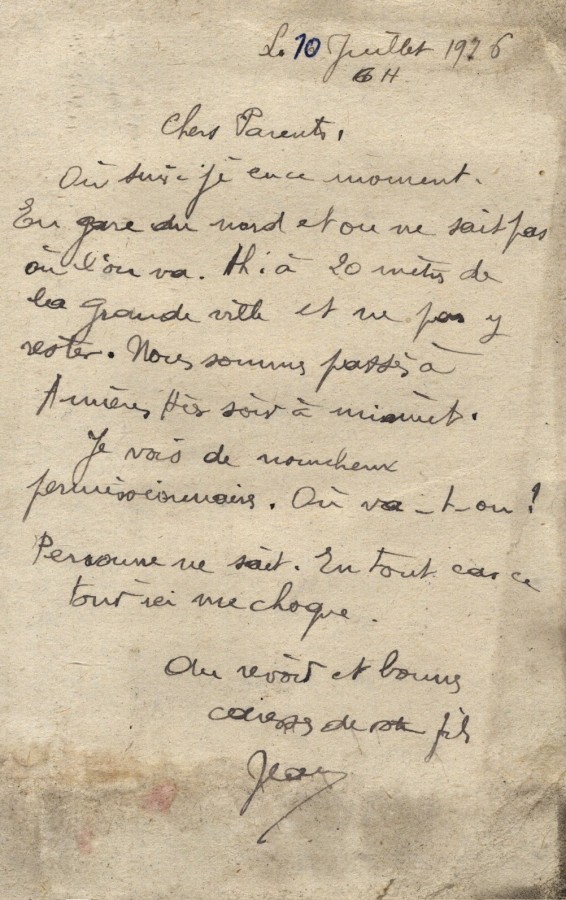 Le 10 Juillet 1926
6 H
Chers Parents,
Où suis-je en ce moment.
En gare du nord et on ne sait pas
où l'on va. Ah! à 20 mètres de
la grande ville et ne pas y
rester. Nous sommes passés à
Asnières hier soir à minuit.
Je vois de nombreux
permissionnaires. Où va-t-on!
Personne ne sait. En tout cas ce
tout ici me choque.
Au revoir et bonnes
caresses de votre fils
Jean